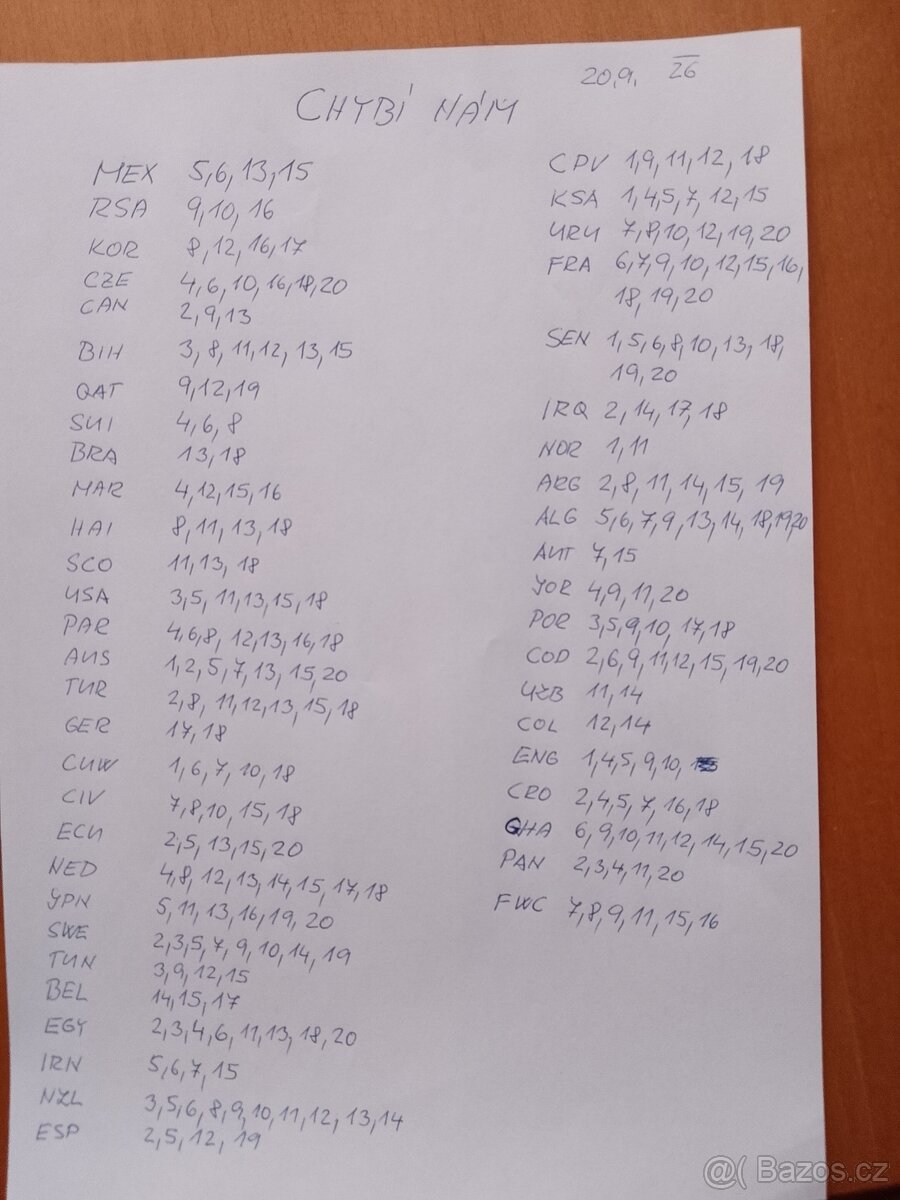 20.9. 26
CHYBÍ NÁM
MEX 5,6,13,15
RSA 9,10,16
KOR 8,12,16,17
CZE 4,6,10,16,18,20
CAN 2,9,13
BIH 3,8,11,12,13,15
QAT 9,12,19
SUI 4,6,8
BRA 13,18
MAR 4,12,15,16
HAI 8,11,13,18
SCO 11,13,18
USA 3,5,11,13,15,18
PAR 4,6,8,12,13,16,18
AUS 1,2,5,7,13,15,20
TUR 2,8,11,12,13,15,18
GER 17,18
CUW 1,6,7,10,18
CIV 7,8,10,15,18
ECU 2,5,13,15,20
NED 4,8,12,13,14,15,17,18
JPN 5,11,13,16,19,20
SWE 2,3,5,7,9,10,14,19
TUN 3,9,12,15
BEL 14,15,17
EGY 2,3,4,6,11,13,18,20
IRN 5,6,7,15
NZL 3,5,6,8,9,10,11,12,13,14
ESP 2,5,12,19
CPV 1,9,11,12,18
KSA 1,4,5,7,12,15
URU 7,8,10,12,19,20
FRA 6,7,9,10,12,15,16,
18,19,20
SEN 1,5,6,8,10,13,18,
19,20
IRQ 2,14,17,18
NOR 1,11
ARG 2,8,11,14,15,19
ALG 5,6,7,9,13,14,18,19,20
AUT 7,15
JOR 4,9,11,20
POR 3,5,9,10,17,18
COD 2,6,9,11,12,15,19,20
UZB 11,14
COL 12,14
ENG 1,4,5,9,10,
CRO 2,4,5,7,16,18
GHA 6,9,10,11,12,14,15,20
PAN 2,3,4,11,20
FWC 7,8,9,11,15,16
@( Bazos.cz